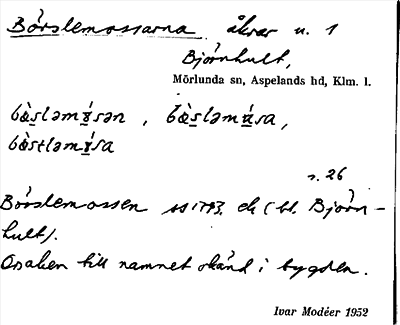 Börslemossarna åkrar u. 1
Björnhult,
Mörlunda sn, Aspelands hd, Klm. l.
bò̀s̲ləmɤ́sən , bò̀s̲ləmá̲sa ,
bò̀stləmɤ́sa
s. 26
Börslemossen ss 1793. ek (bl. Björn-
hult).
Orsaken till namnet okänd i bygden.
Ivar Modéer 1952